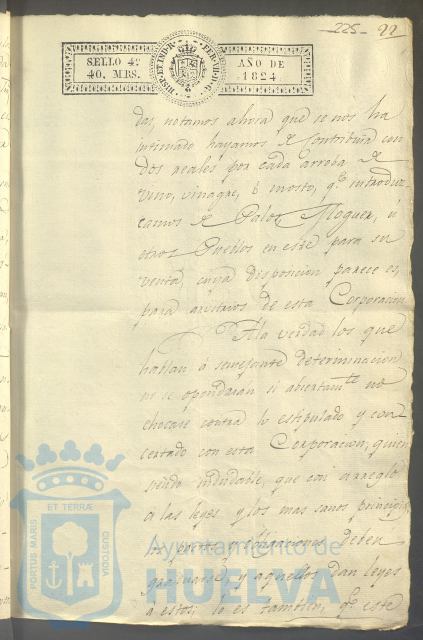 225 - 99
SELLO 4º
40. MRS.
HISP. ET IND. R. FER. VII D. G.
AÑO DE
1824.
das, notamos ahora que se nos ha
intimado hayamos de contribuir con
dos reales por cada arroba de
vino, vinagre, ó mosto, qe. introduz-
camos de Palos, Moguer, ú
otros Pueblos en este para su
venta, cuya disposicion parece es,
para arvitrios de esta Corporacion
A la verdad los que
hablan á semejante determinacion
no se opondrian si abiertamte. no
chocase contra lo estipulado y con-
certado con esta Corporacion; quien
siendo indudable, que con arreglo
á las leyes y los mas sanos principios
los pactos y obligaciones deben
guardarse, y aquellos dan leyes
a estos; lo es tambien, qe. este
PORTUS MARIS
ET TERRÆ
CUSTODIA
Ayuntamiento de
HUELVA